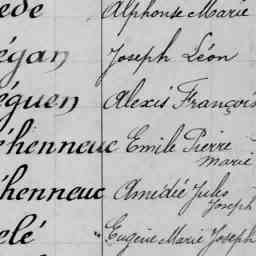 ede Alphonse Marie
égan Joseph Léon
éguen Alexis François
éhenneuc Emile Pierre
Marie
éhenneuc Amédée Jules
Joseph
elé Eugène Marie Joseph